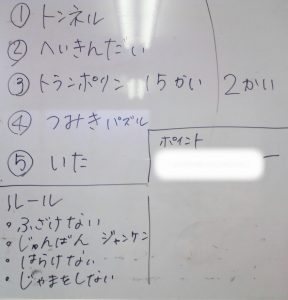 ① トンネル
② へいきんだい
③ トランポリン 15かい 2かい
④ つみきパズル
⑤ いた
ポイント
ルール
・ふざけない
・じゅんばん ジャンケン
・はらけない
・じゃまをしない